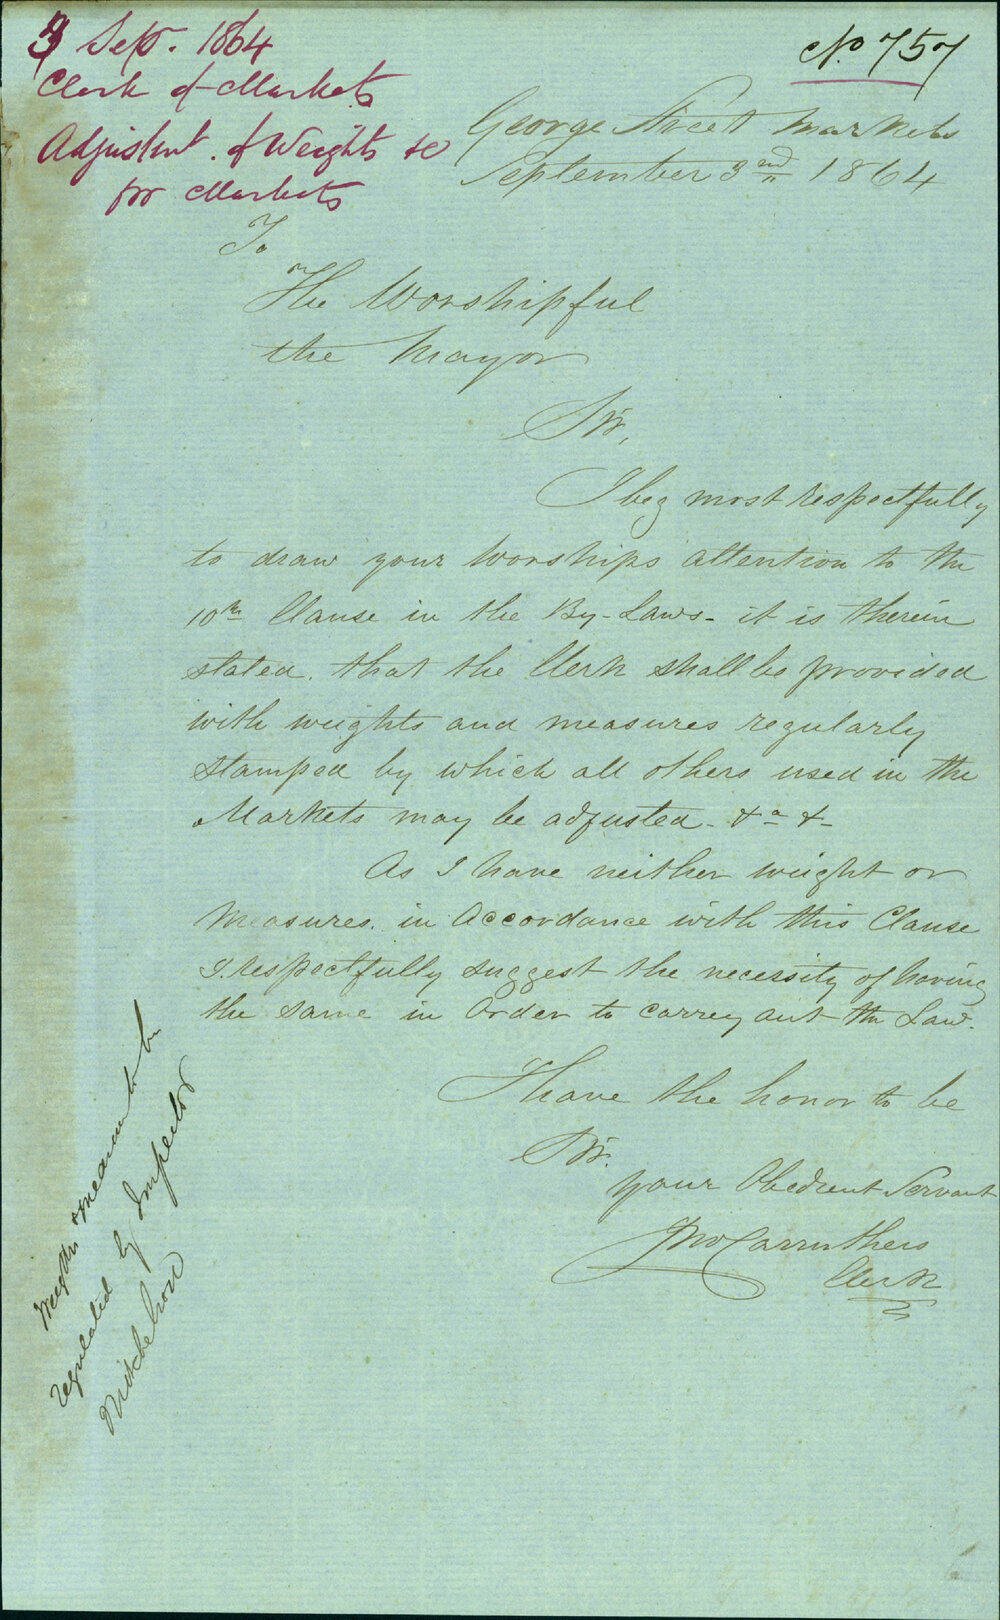 3 Sep. 1864
Clerk of Markets
Adjustmt. of Weights &c
for Markets
No. 757
George Street Markets
September 3rd 1864
To
The Worshipful
the Mayor
Sir,
I beg most respectfully
to draw your Worships attention to the
10th Clause in the By-Laws - it is therein
stated that the Clerk shall be provided
with weights and measures regularly
stamped by which all others used in the
Markets may be adjusted - &a &-
As I have neither weight or
measures in Accordance with this Clause
I respectfully suggest the necessity of having
the same in Order to carrey out the Law.
I have the honor to be
Sir.
your Obedient Servant
Jno Carruthers
Clerk
weights & measures to be
regulated by Inspector